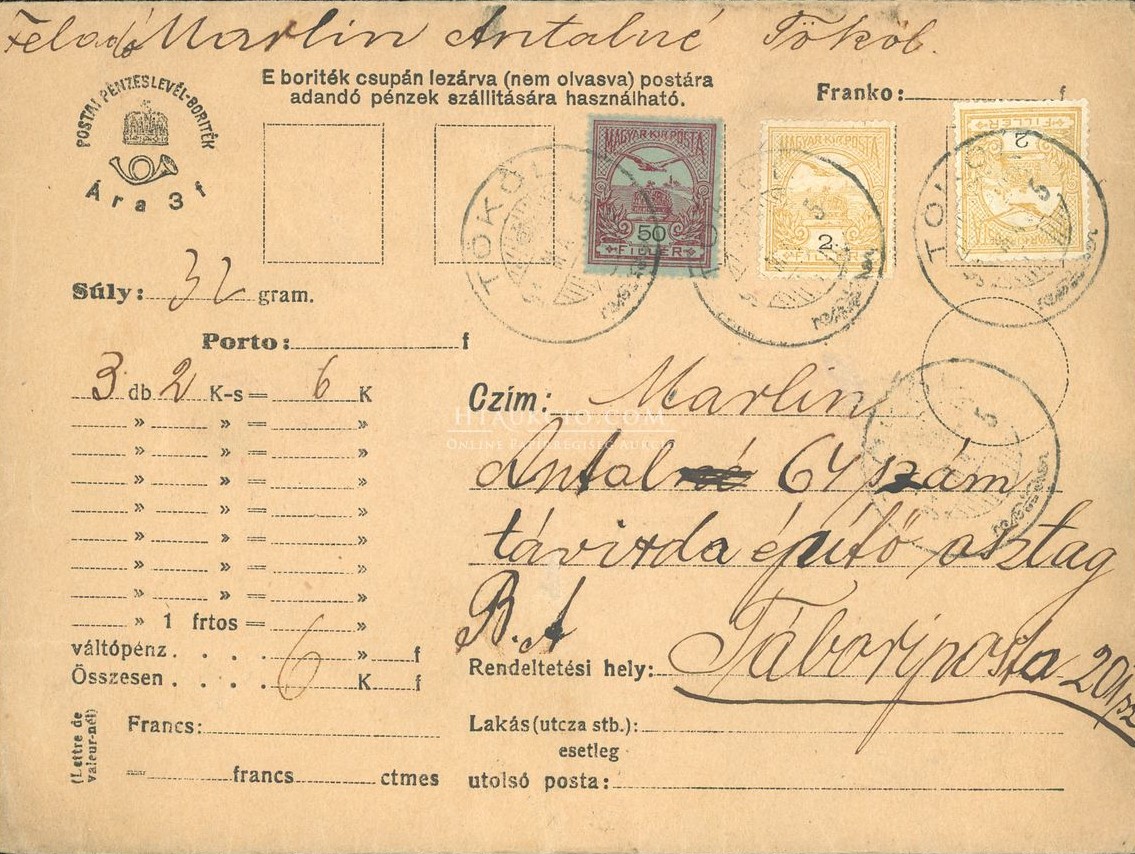 Feladó Marlin Antalné Tököl.
POSTAI PÉNZESLEVÉL-BORITÉK
Ára 3 f
E boriték csupán lezárva (nem olvasva) postára
adandó pénzek szállitására használható.
Franko: f
MAGYAR KIR. POSTA
50
FILLÉR
MAGYAR KIR. POSTA
2
FILLÉR
MAGYAR KIR. POSTA
2
FILLÉR
TÖKÖL
TÖKÖL
TÖKÖL
5
Súly: 32 gram.
Porto: f
3 db 2 K-s = 6 K
» » = »
» » = »
» » = »
» » = »
» » = »
» » = »
» » = »
» 1 frtos = »
váltópénz . . . . » f
Összesen . . . . 6 K f
(Lettre de
valeur-nél)
Francs:
= francs ctmes
Czím: Marlin
Antalné 64 szám
távirda építő osztag
B. A
Rendeltetési hely: Táboriposta 201 sz
Lakás (utcza stb.):
esetleg
utolsó posta:
HUNGKICO.COM
ONLINE PAPÍRRÉGISÉG AUKCIÓ